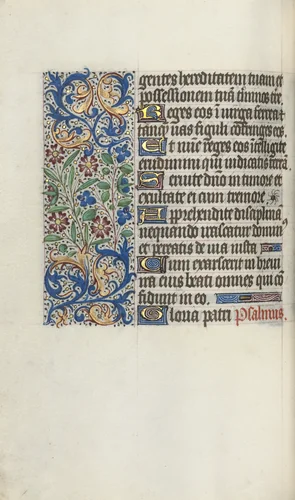 gentes hereditatem tuam et
possessionem tuā t̄minos tre.
Reges eos i uirga ferrea
tanq̄ uas figuli cōfringes eos.
Et nūc reges eos intelligite
erudimini qui iudicatis terrā.
Seruite dn̄o in timore et
exultate ei cum tremore
Apprehendite disciplinā
nequando irascatur domin9
et pereatis de uia iusta
Cum exarserit in breui
ira eius beati omnes qui cō
fidunt in eo.
Gloria patri Psalmus.